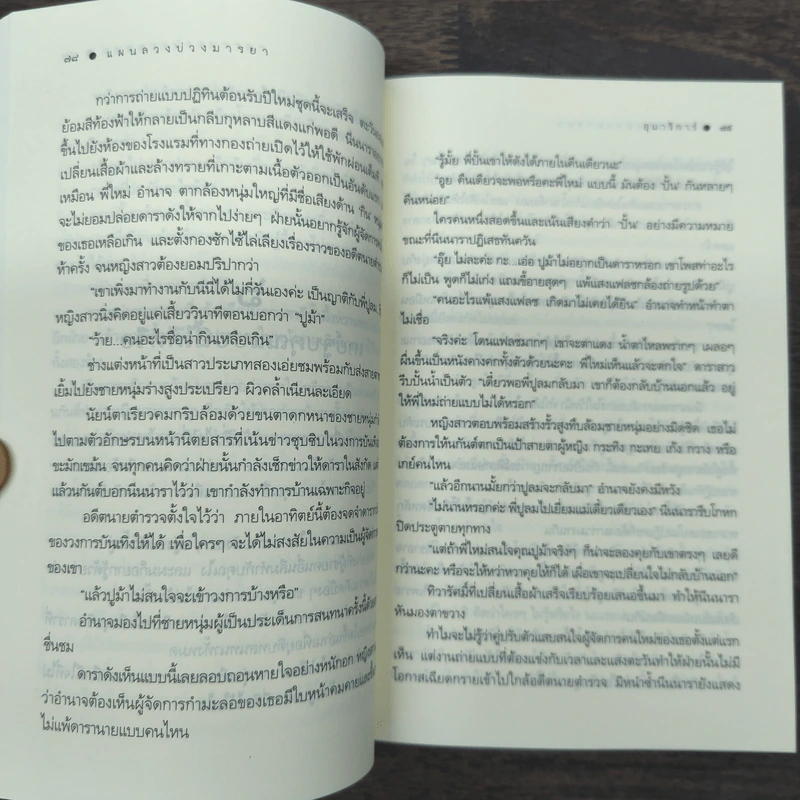 ๗๘ ● แผนลวงบ่วงมารยา
กว่าการถ่ายแบบปฏิทินต้อนรับปีใหม่ชุดนี้จะเสร็จ
ย้อมสีท้องฟ้าให้กลายเป็นกลีบกุหลาบสีแดงแก่พอดี นีนนารา
ขึ้นไปยังห้องของโรงแรมที่ทางกองถ่ายเปิดไว้ให้ใช้พักผ่อน
เปลี่ยนเสื้อผ้าและล้างทรายที่เกาะตามเนื้อตัวออกเป็นอันดับแรก
เหมือน พี่ใหม่ อำนาจ ตากล้องหนุ่มใหญ่ที่มีชื่อเสียงด้าน 'กิน'
จะไม่ยอมปล่อยดาราดังให้จากไปง่ายๆ ฝ่ายนั้นอยากรู้จักผู้จัดการ
ของเธอเหลือเกิน และตั้งกองซักไซ้ไล่เลียงเรื่องราวของอดีตนายตำรวจ
ห้าครั้ง จนหญิงสาวต้องยอมปริปากว่า
"เขาเพิ่งมาทำงานกับนีนี่ได้ไม่กี่วันเองค่ะ เป็นญาติกับพี่ปูลม
หญิงสาวนิ่งคิดอยู่แค่เสี้ยววินาทีตอนบอกว่า "ปูม้า"
"ว้าย...คนอะไรชื่อน่ากินเหลือเกิน"
ช่างแต่งหน้าที่เป็นสาวประเภทสองเอ่ยชมพร้อมกับส่งสายตา
เยิ้มไปยังชายหนุ่มร่างสูงประเปรียว ผิวคล้ำเนียนละเอียด
นัยน์ตาเรียวคมกริบล้อมด้วยขนตาดกหนาของชายหนุ่ม
ไปตามตัวอักษรบนหน้านิตยสารที่เน้นข่าวซุบซิบในวงการบันเทิง
ขะมักเขม้น จนทุกคนคิดว่าฝ่ายนั้นกำลังเช็กข่าวให้ดาราในสังกัด แต่
แล้วนกันต์บอกนีนนาราไว้ว่า เขากำลังทำการบ้านเฉพาะกิจอยู่
อดีตนายตำรวจตั้งใจไว้ว่า ภายในอาทิตย์นี้ต้องจดจำดารา
ของวงการบันเทิงให้ได้ เพื่อใครๆ จะได้ไม่สงสัยในความเป็นผู้จัดการ
ของเขา
"แล้วปูม้าไม่สนใจจะเข้าวงการบ้างหรือ"
อำนาจมองไปที่ชายหนุ่มผู้เป็นประเด็นการสนทนาครั้งนี้ด้วย
ชื่นชม
ดาราดังเห็นแบบนี้เลยลอบถอนหายใจอย่างหนักอก
ว่าอำนาจต้องเห็นผู้จัดการกำมะลอของเธอมีใบหน้าคมคาย
ไม่แพ้ดารานายแบบคนไหน
อุมาริการ์ ● ๗๙
"รู้มั้ย พี่ปั้นเขาให้ดังได้ภายในคืนเดียวนะ"
"อุย คืนเดียวจะพอหรือคะพี่ใหม่ แบบนี้ มันต้อง 'ปั้น' กันหลายๆ
คืนหน่อย"
ใครคนหนึ่งสอดขึ้นและเน้นเสียงคำว่า 'ปั้น' อย่างมีความหมาย
ขณะที่นีนนาราปฏิเสธทันควัน
"อุ๊ย ไม่ละค่ะ กะ...เอ่อ ปูม้าไม่อยากเป็นดาราหรอก เขาโพสท่าอะไร
ก็ไม่เป็น พูดก็ไม่เก่ง แถมขี้อายสุดๆ แพ้แสงแฟลชกล้องถ่ายรูปด้วย"
"คนอะไรแพ้แสงแฟลช เกิดมาไม่เคยได้ยิน" อำนาจทำหน้าทำตา
ไม่เชื่อ
"จริงค่ะ โดนแฟลชมากๆ เขาจะตาแดง น้ำตาไหลพรากๆ เผลอๆ
ผื่นขึ้นเป็นหนังคางคกทั้งตัวด้วยนะคะ พี่ใหม่เห็นแล้วจะตกใจ" ดาราสาว
รีบปั้นน้ำเป็นตัว "เดี๋ยวพอพี่ปูลมกลับมา เขาก็ต้องกลับบ้านนอกแล้ว อยู่
ให้พี่ใหม่ถ่ายแบบไม่ได้หรอก"
หญิงสาวตอบพร้อมสร้างรั้วสูงทึบล้อมชายหนุ่มอย่างมิดชิด เธอไม่
ต้องการให้นกันต์ตกเป็นเป้าสายตาผู้หญิง กระทิง กะเทย เก้ง กวาง หรือ
เกย์คนไหน
"แล้วอีกนานมั้ยกว่าปูลมจะกลับมา" อำนาจยังคงมีหวัง
"ไม่นานหรอกค่ะ พี่ปูลมไปเยี่ยมแม่เดี๋ยวเดียวเอง" นีนนารารีบโกหก
ปิดประตูตายทุกทาง
"แต่ถ้าพี่ใหม่สนใจคุณปูม้าจริงๆ ก็น่าจะลองคุยกับเขาตรงๆ เลยดี
กว่านะคะ หรือจะให้หว่าหวาคุยให้ก็ได้ เผื่อเขาจะเปลี่ยนใจไม่กลับบ้านนอก"
ทิวารัตน์ที่เปลี่ยนเสื้อผ้าเสร็จเรียบร้อยเสนอขึ้นมา ทำให้นีนนารา
หันมองตาขวาง
ทำไมจะไม่รู้ว่าคู่ปรับตัวแสบสนใจผู้จัดการคนใหม่ของเธอตั้งแต่แรก
เห็น แต่งานถ่ายแบบที่ต้องแข่งกับเวลาและแสงตะวันทำให้ฝ่ายนั้นไม่มี
โอกาสเฉียดกรายเข้าไปใกล้อดีตนายตำรวจ มิหนำซ้ำนีนนารายังแสดง